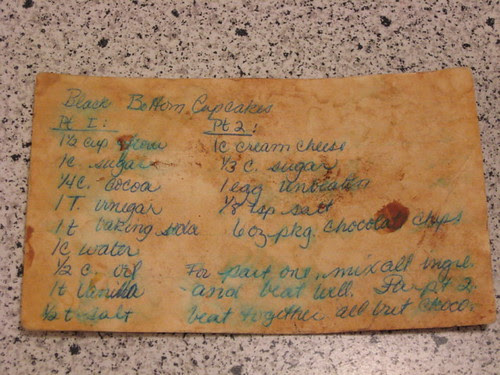 Black Bottom Cupcakes
Pt I:
1½ cup flour
1c. sugar
¼ c. cocoa
1 T. vinegar
1 t baking soda
1c water
½ c. oil
1t vanilla
½ t. salt
Pt 2:
1c cream cheese
⅓ c. sugar
1 egg unbeaten
⅛ tsp salt
6 oz pkg. chocolate chips
For part one, mix all ingre.
and beat well. For pt 2
beat together all but choco.